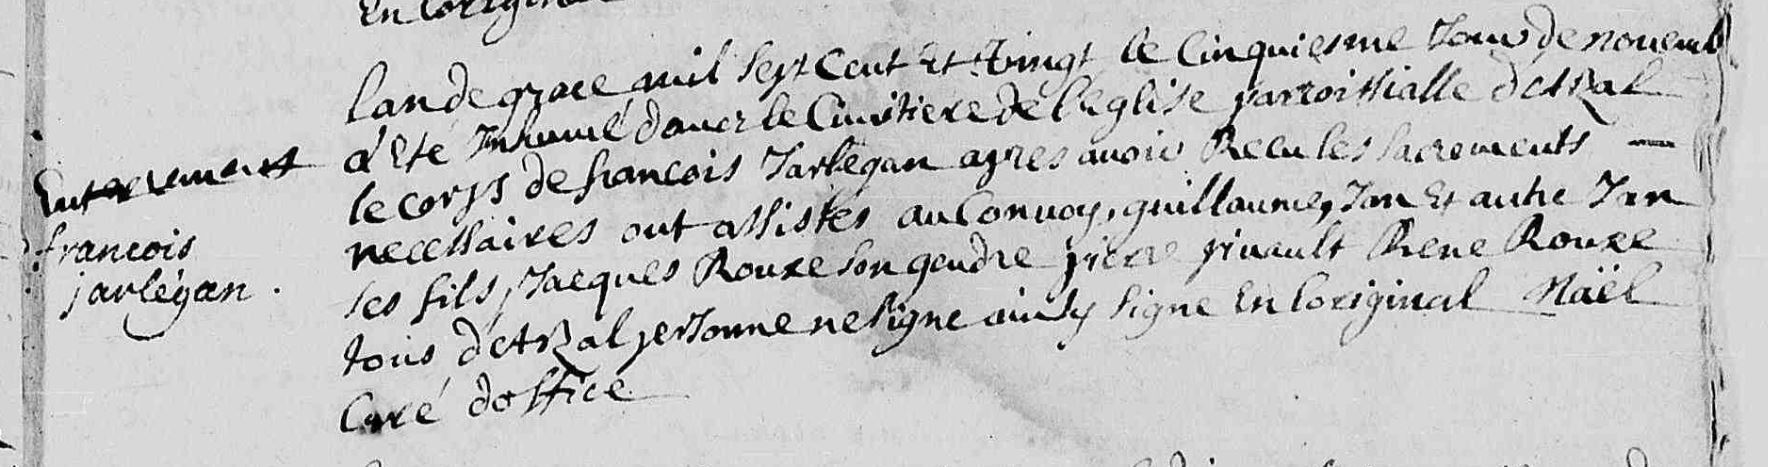 En Loriginal
Lan de grace mil sept Cent Et Vingt le Cinquiesme Jour de novemb
a Eté Inhumé dans le Cimitiere de l'eglise parroissialle d'ARZal
Enterrement
le corps de francois Jarlegan apres avoir Receu les sacrements —
francois
necessaires ont assistés au Convoy, guillaume, Jan Et autre Jan
jarlégan .
ses fils, Jacques Rouxe son gendre pierre pinault Rene Rouxe
tous d'ARZal personne ne signe ainsy signe En Loriginal Naël
Curé d'office